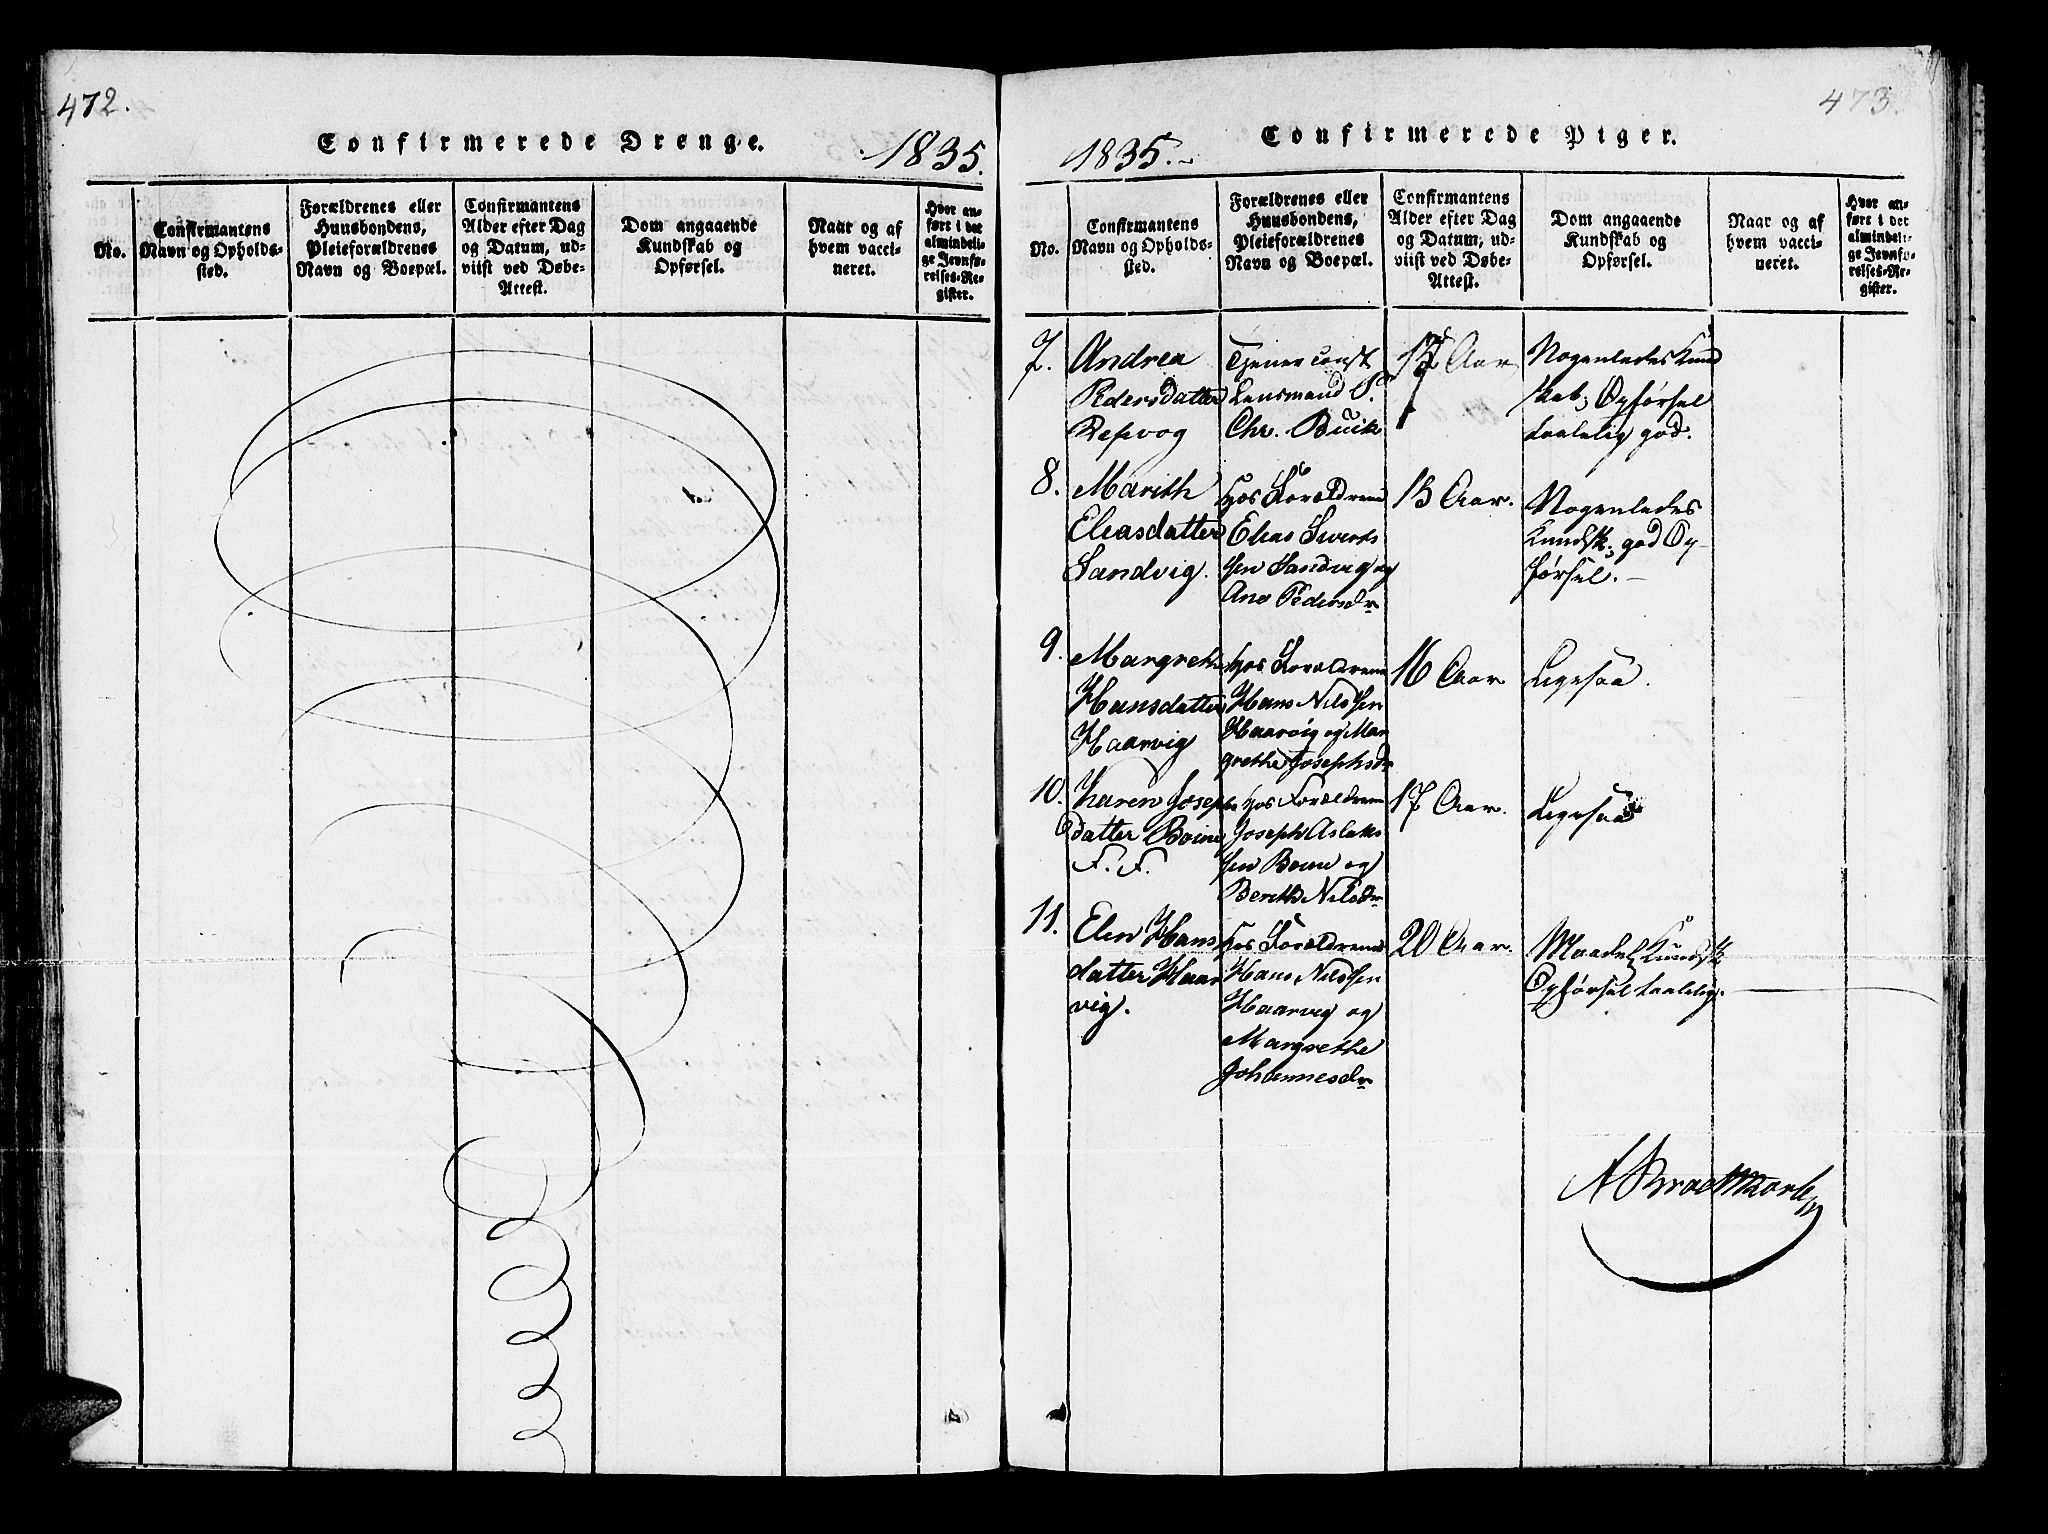 472.
Confirmerede Drenge.
1835.
No.
Confirmantens
Navn og Opholds-
sted.
Forældrenes eller
Huusbondens,
Pleieforældrenes
Navn og Boepæl.
Confirmantens
Alder efter Dag
og Datum, ud-
viist ved Døbe-
Attest.
Dom angaaende
Kundskab og
Opførsel.
Naar og af
hvem vacci-
neret.
Hvor an-
ført i det
almindeli-
ge Jevnfø-
relses-Re-
gister.
473.
Confirmerede Piger.
1835.
No.
Confirmantens
Navn og Opholds-
sted.
Forældrenes eller
Huusbondens,
Pleieforældrenes
Navn og Boepæl.
Confirmantens
Alder efter Dag
og Datum, ud-
viist ved Døbe-
Attest.
Dom angaaende
Kundskab og
Opførsel.
Naar og af
hvem vacci-
neret.
Hvor an-
ført i det
almindeli-
ge Jevnfø-
relses-Re-
gister.
7.
Andrea
Pedersdatter
Refsvog
Tjener const
Lensmand P.
Chr. Buck
Aar
Nogenledes Kund
skab; Opførsel
taalelig god.
8.
Marith
Eliasdatter
Sandvig.
Hos Forældrene
Elias Siverts
sen Sandvig og
Ane Pedersdr
15 Aar.
Nogenledes
Kundsk; god Op-
førsel.
9.
Margrethe
Hansdatter
Haarvig
Hos Forældrene
Hans Nilssen
Haarvig og Mar
grethe Josephsdr
16 Aar
Ligesaa.
10.
Karen Joseph
datter Boine
F. F.
Hos Forældrene
Joseph Aslaks
sen Boine og
Berith Nilsdr
17 Aar.
Ligesaa
11.
Elen Hans
datter Haar
vig.
Hos Forældrene
Hans Nilssen
Haarvig og
Margrethe
Johannesdr
20 Aar.
Maadel Kundsk
Opførsel taalelig.